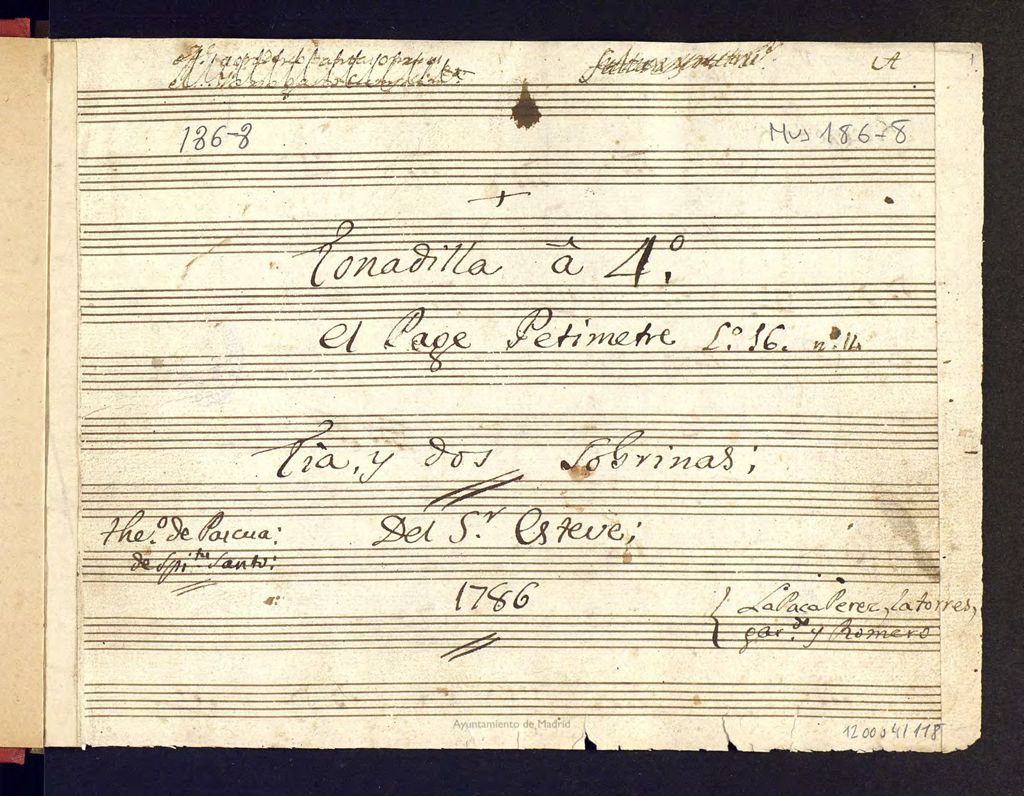 A
1
186-8
Mus 186-8
Tonadilla â 4º.
el Page Petimetre L.º 16. n.º 14
Tia, y dos Sobrinas;
the.º de Pascua:
Del S.r Esteve;
de Spi.tu Santo:
1786
La Paca Perez, la torres,
gar.do y Romero
Ayuntamiento de Madrid
1200041118